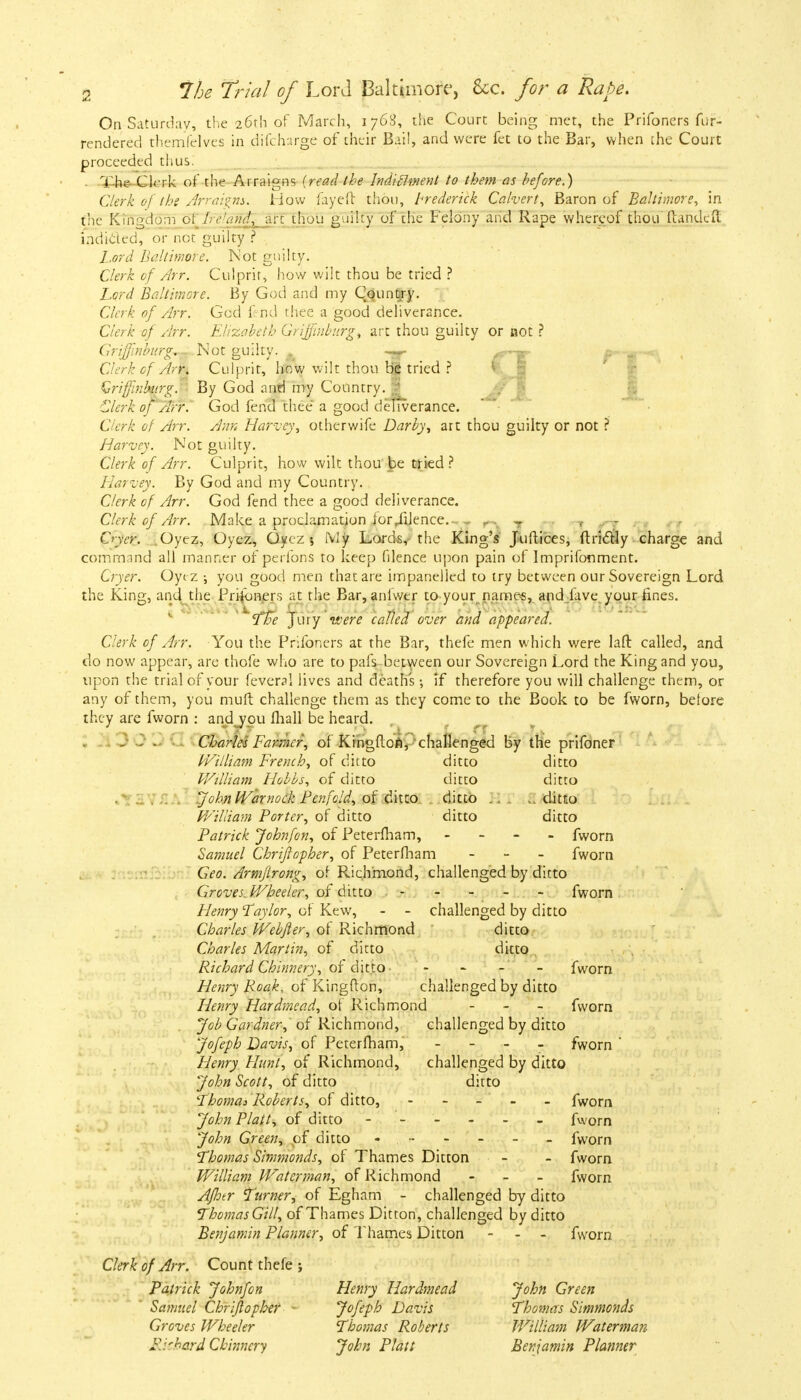 2 The Trial of Lord Baltimore, &c. for a Rape.
On Saturday, the 26th of March, 1768, the Court being met, the Priſoners ſur-
rendered themſelves in diſcharge of their Bail, and were ſet to the Bar, when the Court
proceeded thus.
The Clerk of the Arraigns (read the Indictment to them as before.)
Clerk of the Arraigns. How ſayeſt thou, Frederick Calvert, Baron of Baltimore, in
the Kingdom of Ireland, art thou guilty of the Felony and Rape whereof thou ſtandeſt
indicted, or not guilty?
Lord Baltimore. Not guilty.
Clerk of Arr. Culprit, how wilt thou be tried?
Lord Baltimore. By God and my Country.
Clerk of Arr. God ſend thee a good deliverance.
Clerk of Arr. Elizabeth Griffinburg, art thou guilty or not?
Griffinburg. Not guilty.
Clerk of Arr. Culprit, how wilt thou be tried?
Griffinburg. By God and my Country.
Clerk of Arr. God ſend thee a good deliverance.
Clerk of Arr. Ann Harvey, otherwiſe Darby, art thou guilty or not?
Harvey. Not guilty.
Clerk of Arr. Culprit, how wilt thou be tried?
Harvey. By God and my Country.
Clerk of Arr. God ſend thee a good deliverance.
Clerk of Arr. Make a proclamation for ſilence.
Cryer. Oyez, Oyez, Oyez; My Lords, the King's Juſtices, ſtrictly charge and
command all manner of perſons to keep ſilence upon pain of Impriſonment.
Cryer. Oyez; you good men that are impanelled to try between our Sovereign Lord
the King, and the Priſoners at the Bar, anſwer to your names, and ſave your fines.
The Jury were called over and appeared.
Clerk of Arr. You the Priſoners at the Bar, theſe men which were laſt called, and
do now appear, are thoſe who are to paſs between our Sovereign Lord the King and you,
upon the trial of your ſeveral lives and deaths; if therefore you will challenge them, or
any of them, you muſt challenge them as they come to the Book to be ſworn, before
they are ſworn: and you ſhall be heard.
Charles Farmer, of Kingſton, challenged by the priſoner
William French, of ditto ditto ditto
William Hobbs, of ditto ditto ditto
John Warnock Penfold, of ditto ditto ditto
William Porter, of ditto ditto ditto
Patrick Johnſon, of Peterſham, - - - - ſworn
Samuel Chriſtopher, of Peterſham - - - ſworn
Geo. Armſtrong, of Richmond, challenged by ditto
Groves Wheeler, of ditto - - - - - ſworn
Henry Taylor, of Kew, - - challenged by ditto
Charles Webſter, of Richmond ditto
Charles Martin, of ditto ditto
Richard Chinnery, of ditto - - - - ſworn
Henry Roak, of Kingſton, challenged by ditto
Henry Hardmead, of Richmond - - - ſworn
Job Gardner, of Richmond, challenged by ditto
Joſeph Davis, of Peterſham, - - - - ſworn
Henry Hunt, of Richmond, challenged by ditto
John Scott, of ditto ditto
Thomas Roberts, of ditto, - - - - - ſworn
John Platt, of ditto - - - - - - ſworn
John Green, of ditto - - - - - - ſworn
Thomas Simmonds, of Thames Ditton - - ſworn
William Waterman, of Richmond - - - ſworn
Aſher Turner, of Egham - challenged by ditto
Thomas Gill, of Thames Ditton, challenged by ditto
Benjamin Planner, of Thames Ditton - - - ſworn
Clerk of Arr. Count theſe;
Patrick Johnſon Henry Hardmead John Green
Samuel Chriſtopher Joſeph Davis Thomas Simmonds
Groves Wheeler Thomas Roberts William Waterman
Richard Chinnery John Platt Benjamin Planner